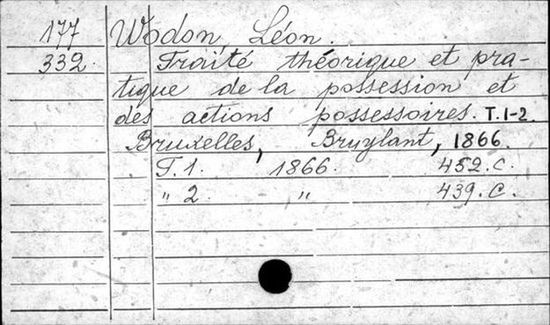 177 Wodon Léon.
332. Traité théorique et pra-
tique de la possession et
des actions possessoires. T.1-2.
Bruxelles, Bruylant, 1866.
T. 1. 1866. 452. c.
" 2. " 439. c.